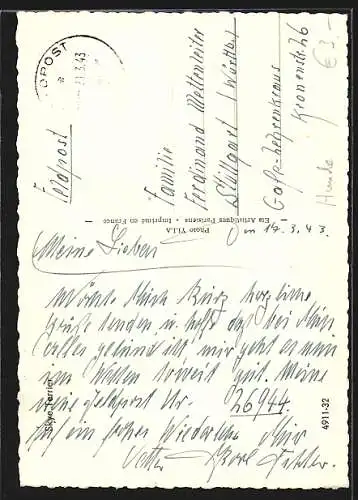 FELDPOST
21.3.43
Feldpost
Familie
Ferdinand Mettenleiter
Stuttgart (Württ)
Kronenstr. 26
€ 3.-
Hunde
Ets Artistiques Parisiens - Imprimé en France
Photo YLLA
den 19.3.43
Meine Lieben
Möchte Euch kurz herzliche
Grüße senden u. hoffe daß bei Euch
alles gesund ist mir geht es nun
im Westen soweit gut. Meine
neue Feldpost Nr.
26944.
Auf ein frohes Wiedersehn Euer
Vetter Karl
Skye-Terrier
4911-32